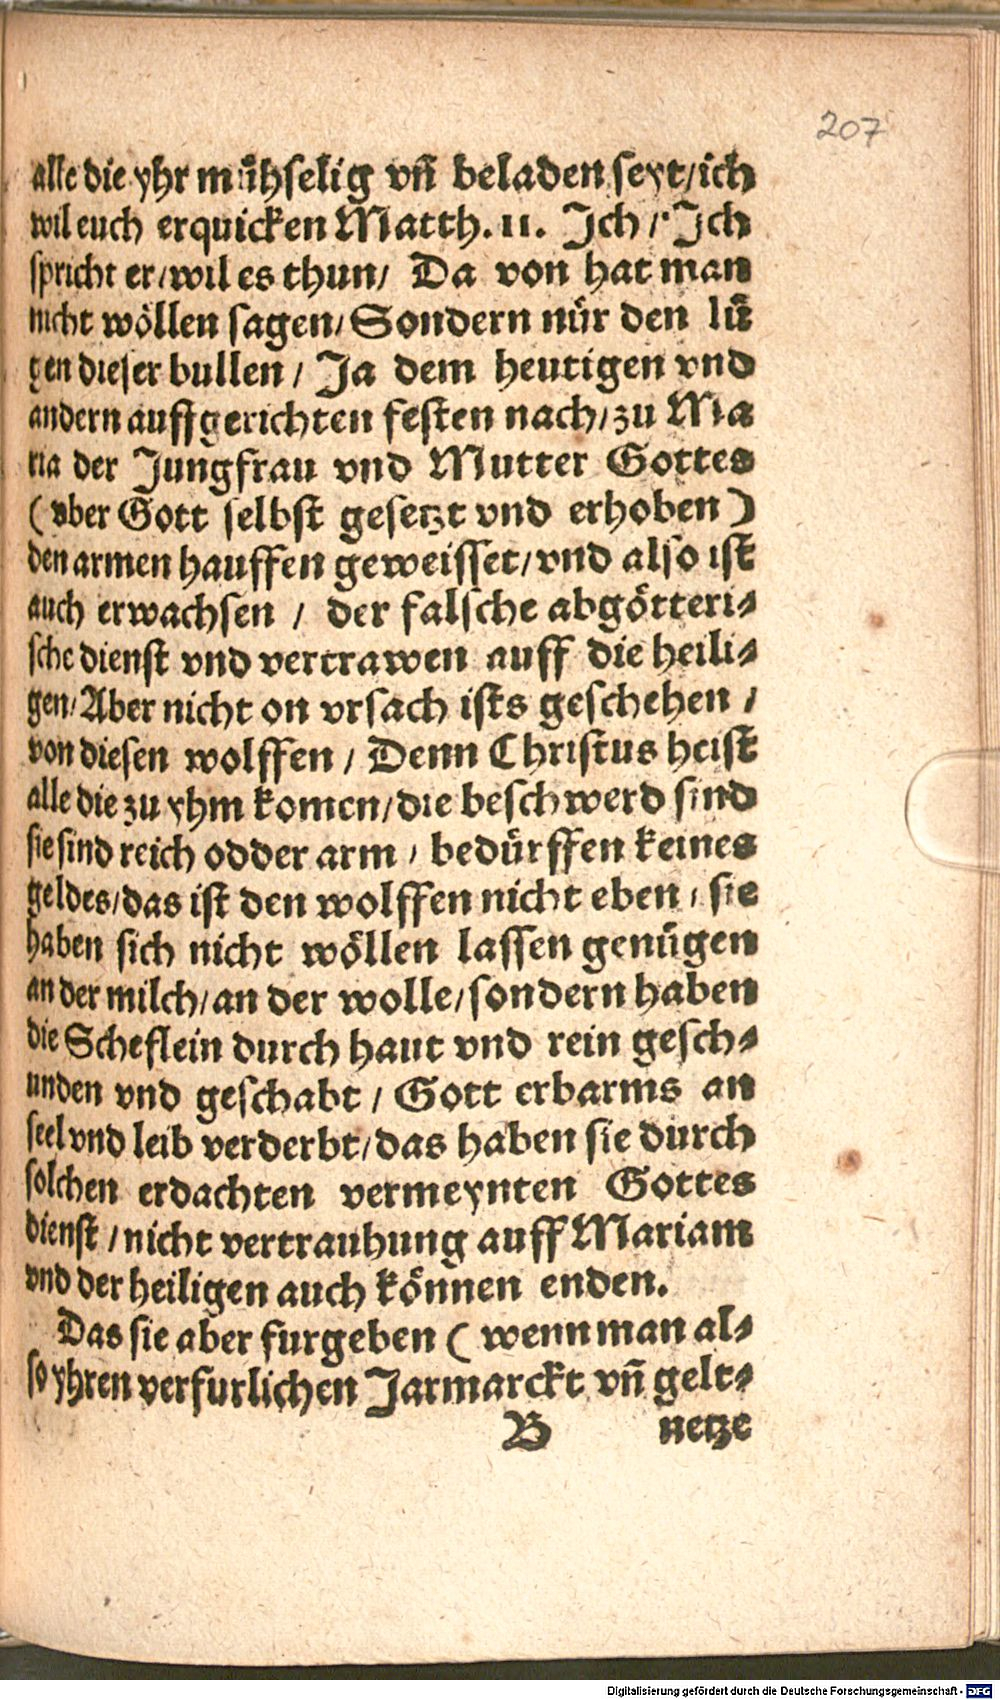 207
alle die yhr mühselig vn̄ beladen seyt/ich
wil euch erquicken Matth. 11. Ich / Ich
spricht er/wil es thun/ Da von hat man
nicht wöllen sagen/Sondern nür den lü
gen dieser bullen / Ja dem heutigen vnd
andern auffgerichten festen nach/zu Ma
ria der Jungfrau vnd Mutter Gottes
(vber Gott selbst gesetzt vnd erhoben)
den armen hauffen geweisset/vnd also ist
auch erwachsen / der falsche abgötteri-
sche dienst vnd vertrawen auff die heili-
gen/Aber nicht on vrsach ists geschehen /
von diesen wolffen / Denn Christus heist
alle die zu yhm komen/die beschwerd sind
sie sind reich odder arm / bedürffen keines
geldes/das ist den wolffen nicht eben / sie
haben sich nicht wöllen lassen genügen
an der milch/an der wolle/sondern haben
die Scheflein durch haut vnd rein gesch-
unden vnd geschabt / Gott erbarms an
seel vnd leib verderbt/das haben sie durch
solchen erdachten vermeynten Gottes
dienst / nicht vertrauhung auff Mariam
vnd der heiligen auch können enden.
Das sie aber furgeben ( wenn man al-
so yhren verfurlichen Jarmarckt vn̄ gelt-
B netze
Digitalisierung gefördert durch die Deutsche Forschungsgemeinschaft - DFG